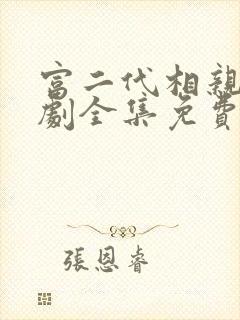 富二代相親
劇全集免費
張恩睿